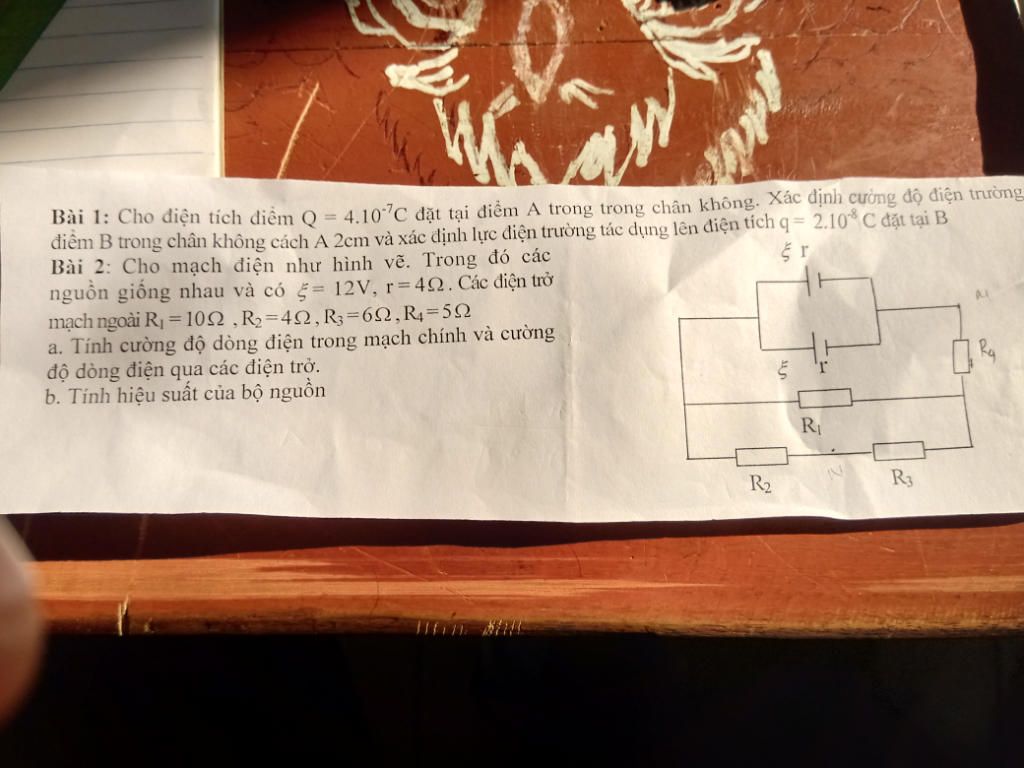 Bài 1: Cho điện tích điểm Q = 4.10⁻⁷C đặt tại điểm A trong trong chân không. Xác định cường độ điện trường
điểm B trong chân không cách A 2cm và xác định lực điện trường tác dụng lên điện tích q = 2.10⁻⁸ C đặt tại B
Bài 2: Cho mạch điện như hình vẽ. Trong đó các
nguồn giống nhau và có ξ = 12V, r = 4Ω. Các điện trở
mạch ngoài R₁ = 10Ω , R₂ = 4Ω , R₃ = 6Ω , R₄ = 5Ω
a. Tính cường độ dòng điện trong mạch chính và cường
độ dòng điện qua các điện trở.
b. Tính hiệu suất của bộ nguồn
ξ r
R₄
ξ r
R₁
N
R₂
R₃